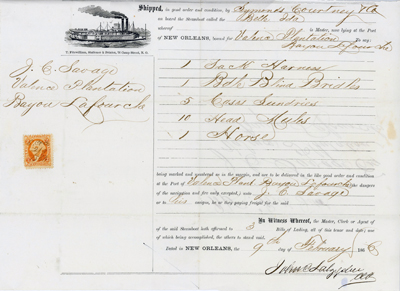 Shipped, in good order and condition, by Symonds Courtney & Co
on board the Steamboat called the Belle Ida
whereof is Master, now lying at the Port
of NEW ORLEANS, bound for Valence Plantation
Bayou Lafourche To say:
J. C. Savage
Valence Plantation
Bayou Lafourche
1 Sack Harness
1 Bdh Blind Bridles
5 Cases Sundries
10 Head Mules
1 Horse
being marked and numbered as in the margin, and are to be delivered in the like good order and condition
at the Port of Valence Plant Bayou Lafourche dangers
of the navigation and fire only excepted, unto J. C. Savage
or his assigns, he or they paying freight for the said
In Witness Whereof, the Master, Clerk or Agent of
the said Steamboat hath affirmed to 3 Bills of Lading, all of this tenor and date; one
of which being accomplished, the others to stand void.
Dated in NEW ORLEANS, the 9th day of February 1866
John